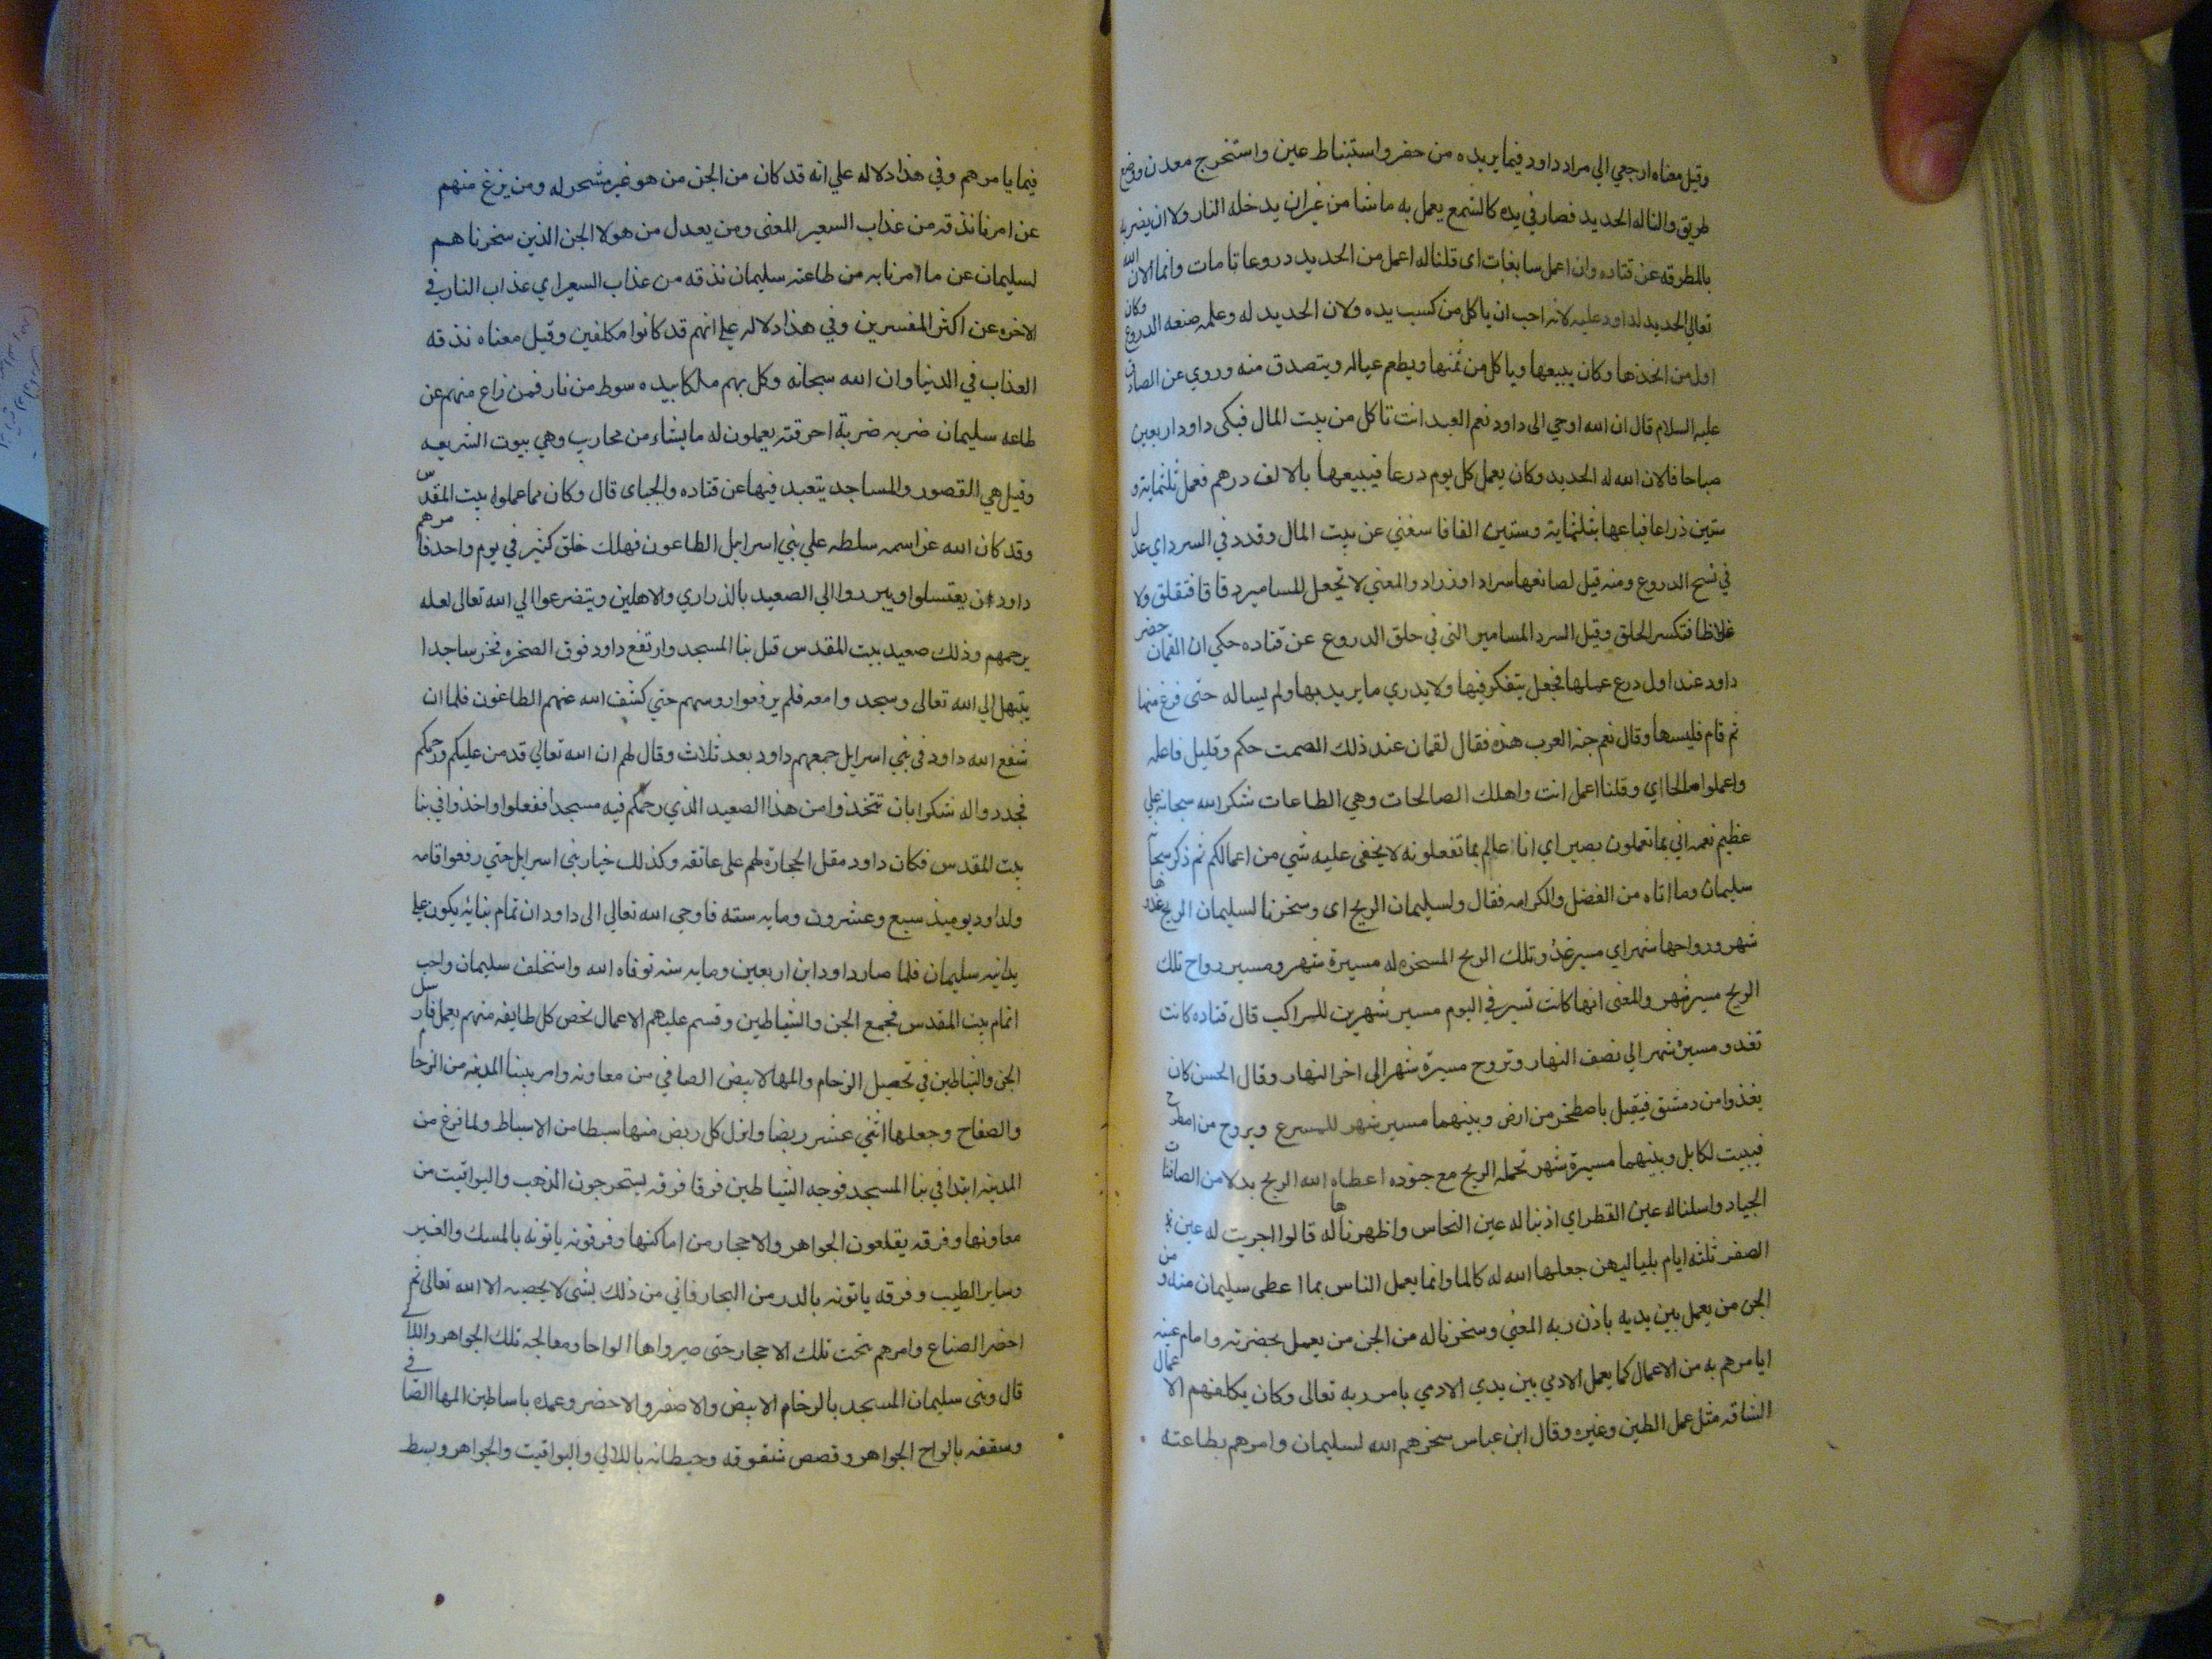 وقيل معناه ارجعي الي مراد داود فيما يريده من حفر واستنباط عين واستخرج معدن ووضع
طريق والنا له الحديد فصار في يده كالشمع يعمل به ما شا من غير ان يدخله النار ولا ان يضربه
بالمطرقه عن قتاده وان اعمل سابغات اى قلنا له اعمل من الحديد دروعا تامات وانما الان الله
تعالي الحديد لداود عليه لانه احب ان ياكل من كسب يده ولان الحديد له وعلمه صنعه الدروع وكان
اول من اتخذها وكان يبيعها وياكل من ثمنها ويطعم عياله ويتصدق منه وروي عن الصادق
عليه السلام قال ان الله اوحي الى داود نعم العبد انت تاكل من بيت المال فبكى داود اربعين
صباحا فالان الله له الحديد وكان يعمل كل يوم درعا فيبيعها بالالف درهم فعمل ثلثمايه و
ستين ذراعا فباعها بثلثماية وستين الفا فاسغني عن بيت المال وقدد في السرد اي عدل
في نسج الدروع ومنه قيل لصانعها سراد او زراد والمعني لا تجعل المسامير دقاقا فتقلق ولا
غلاظا فتكسر الحلق وقيل السرد المسامير التى في حلق الدروع عن قتاده حكي ان القمان حضر
داود عند اول درع عملها فجعل يتفكر فيها ولا يدري ما يريد بها ولم يساله حتى فرغ منها
ثم قام فلبسها وقال نعم جنه العرب هذه فقال لقمان عند ذلك الصمت حكم وقليل فاعله
واعملوا صالحا اي وقلنا اعمل انت واهلك الصالحات وهي الطاعات شكر الله سبحانه علي
عظيم نعمه اني بما تعملون بصير اي انا عالم بما تفعلونه لا يخفى عليه شي من اعمالكم ثم ذكر سبحانه
سليمان وما اتاه من الفضل والكرامه فقال ولسليمان الريح اى وسخرنا لسليمان الريح غدوها
شهر ورواحها شهر اي مسير غدو تلك الريح المسخره له مسيرة شهر ومسير رواح تلك
الريح مسير شهر والمعنى انها كانت تسير في اليوم مسير شهرين للراكب قال قتاده كانت
تغدو مسيرة شهر الي نصف النهار وتروح مسيرة شهر الى اخر النهار وقال الحسن كان
يغذوا من دمشق فيقيل باصطخر من ارض وبينهما مسير شهر للمسرع ويروح من اصطرح
فيبيت لكابل وبينهما مسيرة شهر تحمله الريح مع جنوده اعطاه الله الريح بدلا من الصافنات
الجياد واسلنا له عين القطر اي اذبنا له عين النحاس واظهرناها له قالوا اجريت له عين
الصفر ثلثه ايام بلياليهن جعلها الله له كالما وانما يعمل الناس بما اعطى سليمان منه ومن
الجن من يعمل بين يديه باذن ربه المعني وسخرنا له من الجن من يعمل بحضرته وامام عينه
ايامرهم به من الاعمال كما يعمل الادمي بين يدي الادمي بامر ربه تعالى وكان يكلفهم الاعمال
الشاقه مثل عمل الطين وغيره وقال ابن عباس سخرهم الله لسليمان وامرهم بطاعته
فيما يامرهم وفي هذا دلاله علي انه قد كان من الجن من هو غير مسخر له ومن يزغ منهم
عن امرنا نذقه من عذاب السعير المعنى ومن يعدل من هولا الجن الذين سخرناهم
لسليمان عن ما امرنا به من طاعته سليمان نذقه من عذاب السعير اي عذاب النار في
الاخره عن اكثر المفسرين وفي هذا دلاله علي انهم قد كانوا مكلفين وقيل معناه نذقه
العذاب في الدنيا وان الله سبحانه وكل بهم ملكا بيده سوط من نار فمن زاع منهم عن
طاعه سليمان ضربه ضربة احرقته يعملون له ما يشاء من محاريب وهي بيوت الشريعه
وقيل هي القصور والمساجد يتعبد فيها عن قتاده والجباى قال وكان مما عملوه بيت المقدس
وقد كان الله عز اسمه سلطه علي بني اسرايل الطاعون فهلك خلق كثير في يوم واحد فامرهم
داود ان يغتسلوا ويبرروا الي الصعيد بالذراري والاهلين ويتضرعوا الي الله تعالى لعله
يرحمهم وذلك صعيد بيت المقدس قبل بنا المسجد وارتفع داود فوق الصخره فخر ساجدا
يبتهل الي الله تعالى وسجدوا معه فلم يرفعوا روسهم حتي كشف الله عنهم الطاعون فلما ان
شفع الله داود في بني اسرايل جمعهم داود بعد ثلاث وقال لهم ان الله تعالي قد من عليكم ورحمكم
فجددوا له شكرا بان تتخذوا من هذا الصعيد الذي رحمكم فيه مسجدا ففعلوا واخذوا في بنا
بيت المقدس فكان داود مقل الحجارة لهم على عاتقه وكذلك خيار بنى اسرايل حتي رفعوا قامه
ولداود يوميذ سبع وعشرون ومايه سنه فاوحي الله تعالي الى داود ان تمام بنايه يكون علي
يد ابنه سليمان فلما صار داود ابن اربعين ومايه سنه توفاه الله واستخلف سليمان واحب
اتمام بيت المقدس فجمع الجن والشياطين وقسم عليهم الاعمال نخص كل طايفه منهم بعمل فارسل
الجن والشياطين في تحصيل الرخام والمها الابيض الصافي من معاونه وامر ببنا المدينه من الرخام
والصفاح وجعلها اثني عشر ربضا وانزل كل ربض منها سبطا من الاسباط ولما فرغ من
المدينه ابتدا في بنا المسجد فوجه الشياطين فرقا فرقه يستخرجون الذهب واليواقيت من
معاونها وفرقه يقلعون الجواهر والاحجار من اماكنها وفرقونه ياتونه بالمسك والعنبر
وساير الطيب وفرقه ياتونه بالدر من البحار فاتي من ذلك بشي لا يحصيه الا الله تعالى ثم
احضر الصناع وامرهم بنحت تلك الاحجار حتى صيرواها الواحا ومعالجه تلك الجواهر واللالي
قال وبنى سليمان المسجد بالرخام الابيض والاصفر والاخضر وعمده باساطين المها الصافي
وسقفه بالواح الجواهر وقصص شقوقه وحيطانه باللالي واليواقيت والجواهر وبسط